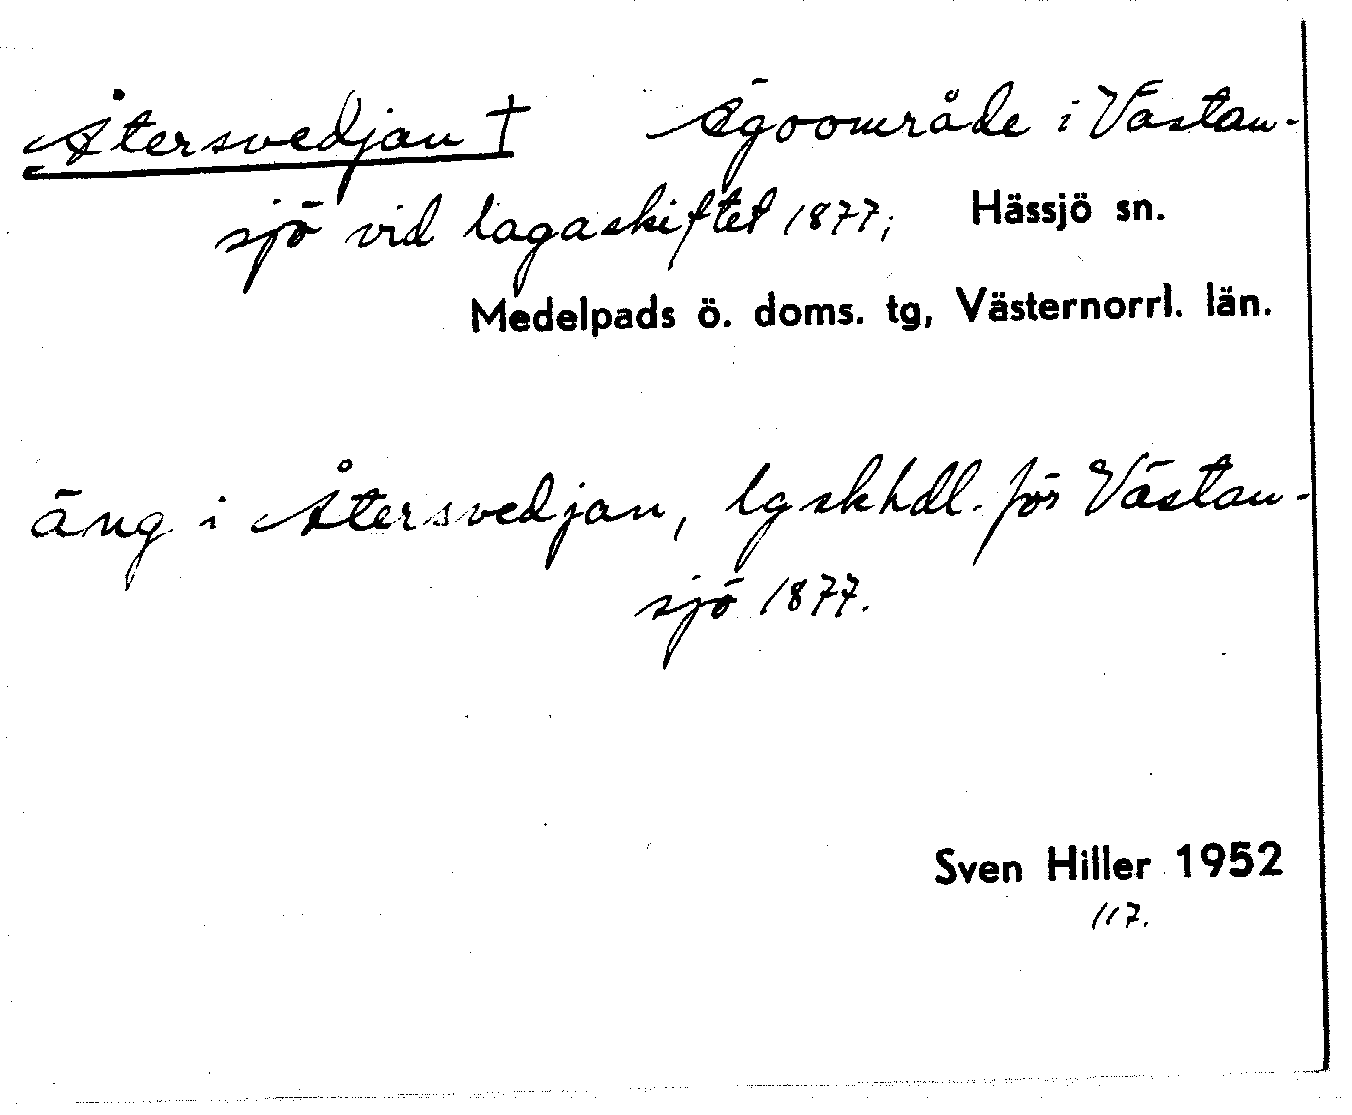 Återsvedjan † Ägoområde i Västan-
sjö vid lagaskiftet 1877; Hässjö sn.
Medelpads ö. doms. tg, Västernorrl. län.
äng i Återsvedjan, lgskhdl. för Västan-
sjö 1877.
Sven Hiller 1952
117.